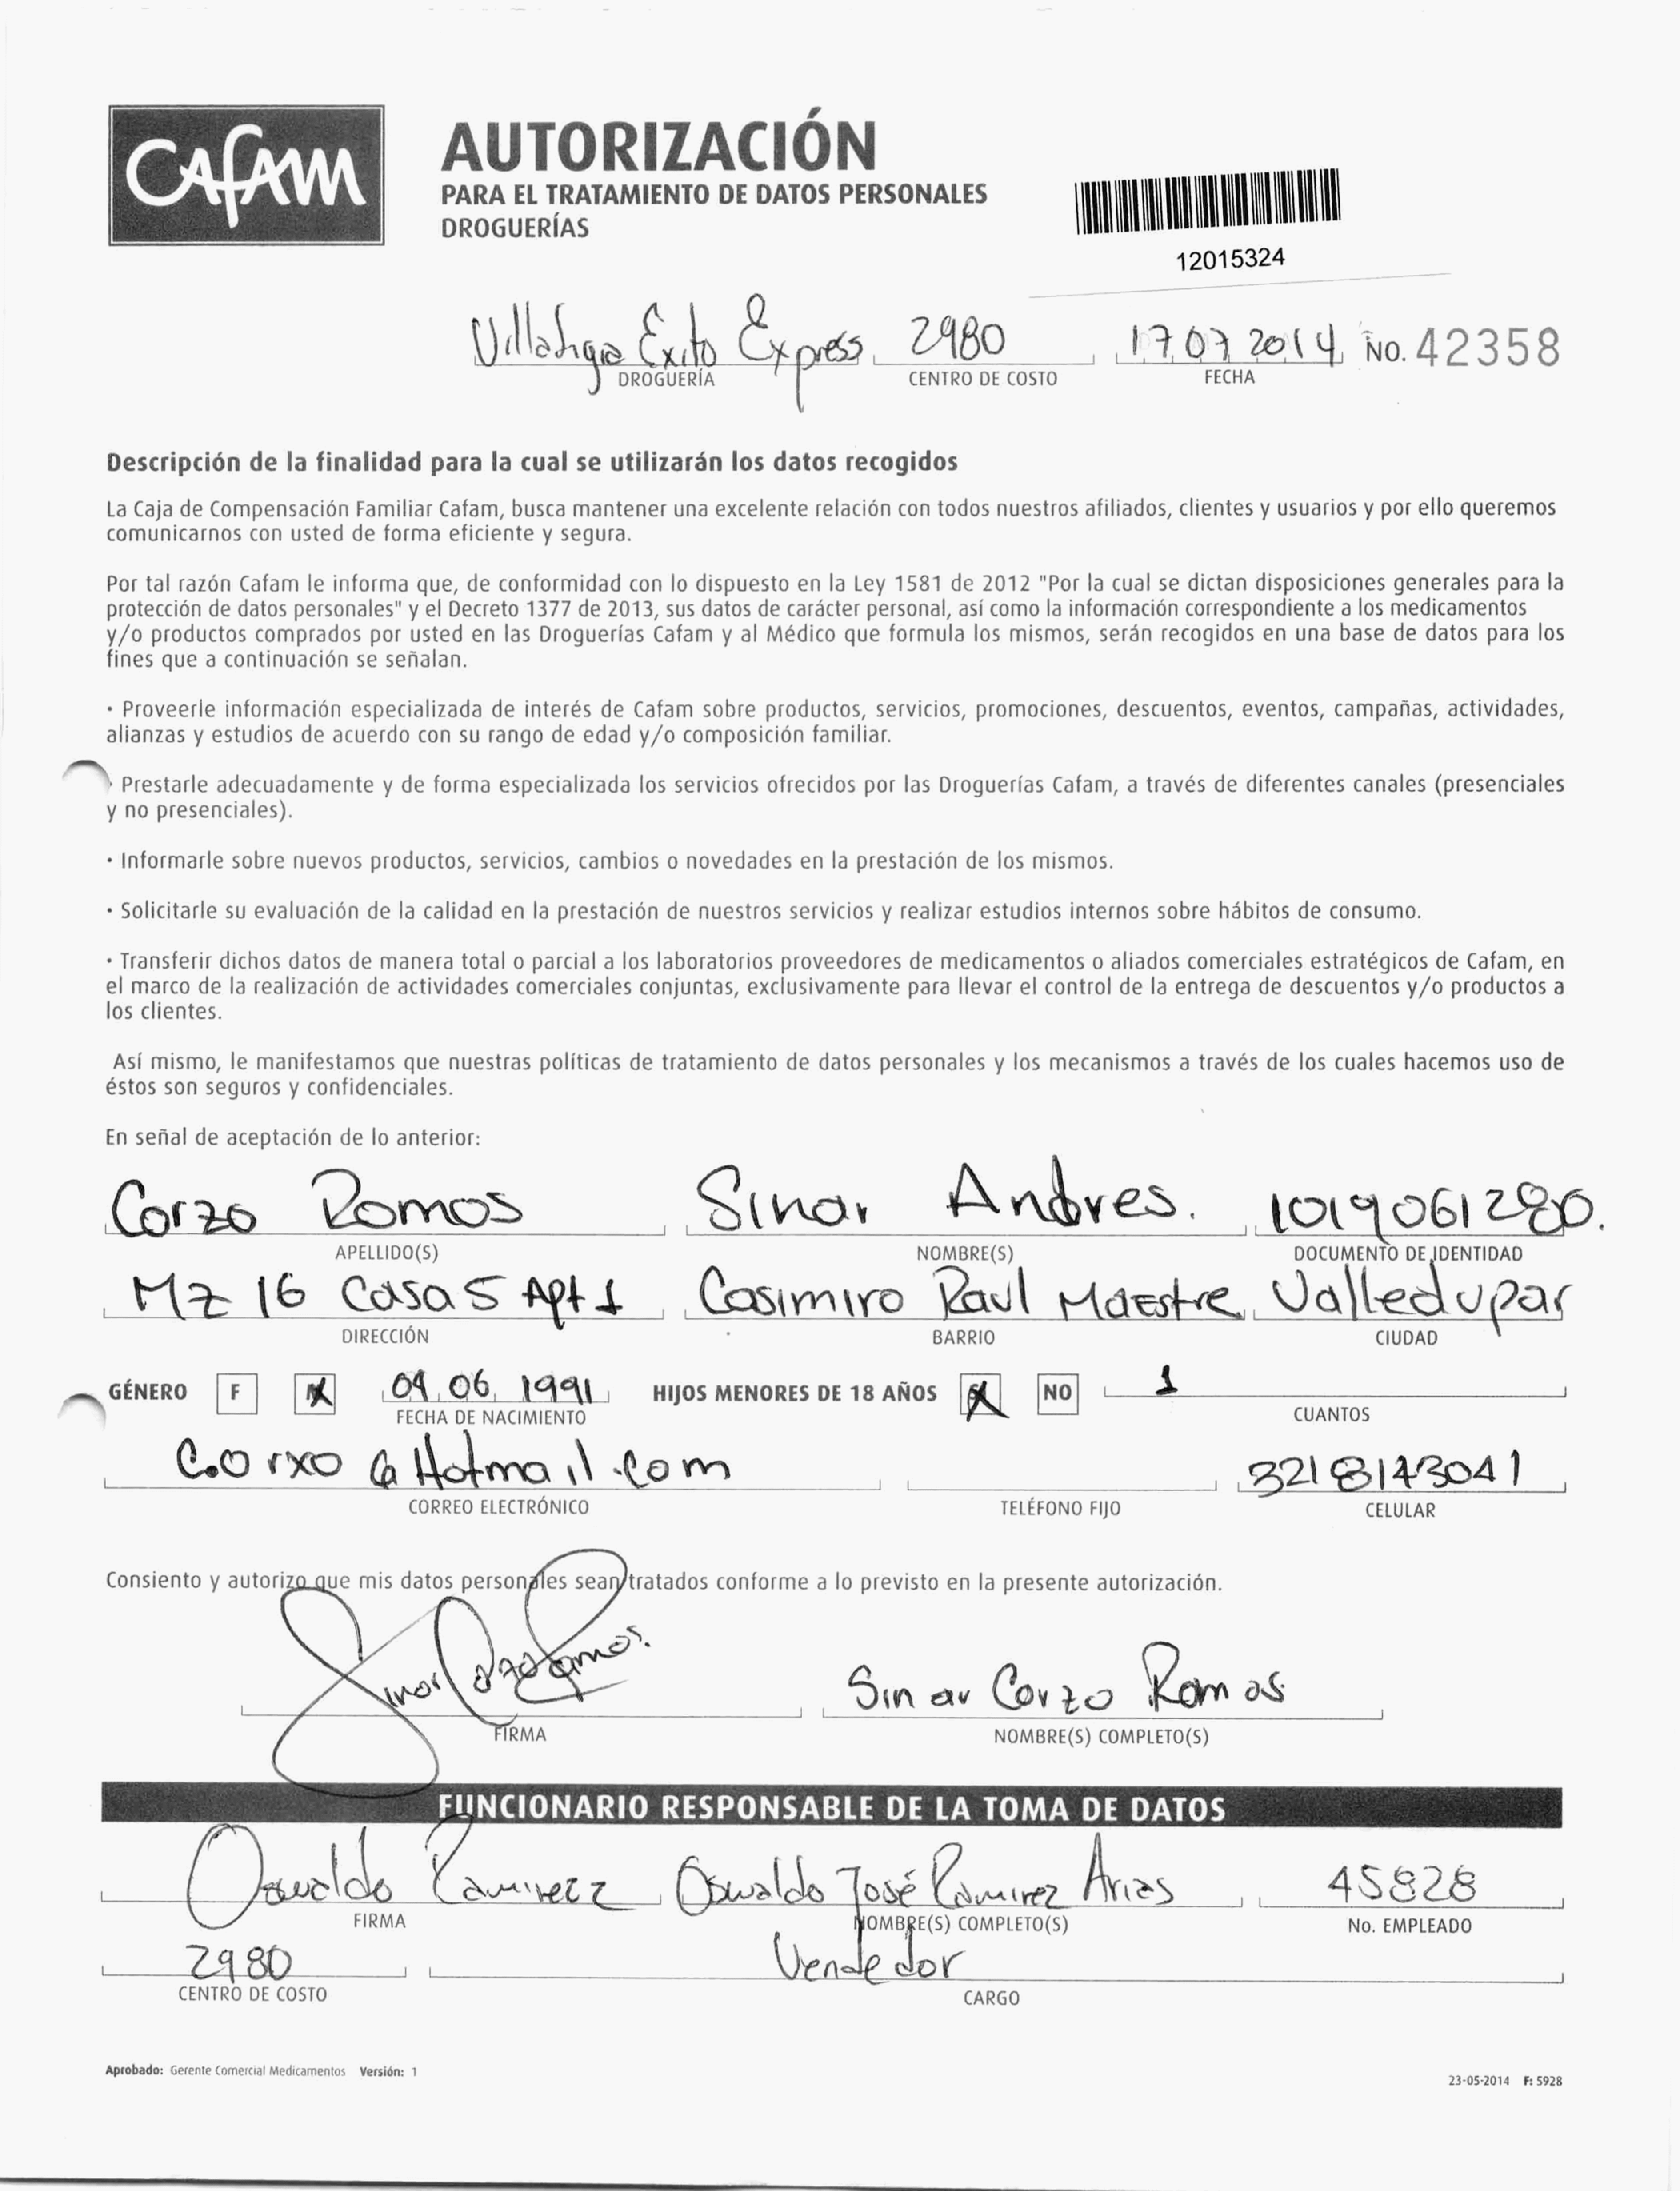 CAFAM
AUTORIZACIÓN
PARA EL TRATAMIENTO DE DATOS PERSONALES
DROGUERÍAS
12015324
Exito Express 2980 17 07 2014 No. 42358
DROGUERÍA CENTRO DE COSTO FECHA
Descripción de la finalidad para la cual se utilizarán los datos recogidos
La Caja de Compensación Familiar Cafam, busca mantener una excelente relación con todos nuestros afiliados, clientes y usuarios y por ello queremos
comunicarnos con usted de forma eficiente y segura.
Por tal razón Cafam le informa que, de conformidad con lo dispuesto en la Ley 1581 de 2012 "Por la cual se dictan disposiciones generales para la
protección de datos personales" y el Decreto 1377 de 2013, sus datos de carácter personal, así como la información correspondiente a los medicamentos
y/o productos comprados por usted en las Droguerías Cafam y al Médico que formula los mismos, serán recogidos en una base de datos para los
fines que a continuación se señalan.
• Proveerle información especializada de interés de Cafam sobre productos, servicios, promociones, descuentos, eventos, campañas, actividades,
alianzas y estudios de acuerdo con su rango de edad y/o composición familiar.
• Prestarle adecuadamente y de forma especializada los servicios ofrecidos por las Droguerías Cafam, a través de diferentes canales (presenciales
y no presenciales).
• Informarle sobre nuevos productos, servicios, cambios o novedades en la prestación de los mismos.
• Solicitarle su evaluación de la calidad en la prestación de nuestros servicios y realizar estudios internos sobre hábitos de consumo.
• Transferir dichos datos de manera total o parcial a los laboratorios proveedores de medicamentos o aliados comerciales estratégicos de Cafam, en
el marco de la realización de actividades comerciales conjuntas, exclusivamente para llevar el control de la entrega de descuentos y/o productos a
los clientes.
Así mismo, le manifestamos que nuestras políticas de tratamiento de datos personales y los mecanismos a través de los cuales hacemos uso de
éstos son seguros y confidenciales.
En señal de aceptación de lo anterior:
Corzo Ramos Sinar Andres. 1019061280.
APELLIDO(S) NOMBRE(S) DOCUMENTO DE IDENTIDAD
Mz 16 Casa 5 Apt 1 Casimiro Raul Maestre Valledupar
DIRECCIÓN BARRIO CIUDAD
GÉNERO F M 09 06 1991 HIJOS MENORES DE 18 AÑOS SI NO 1
FECHA DE NACIMIENTO CUANTOS
C.orxo@Hotmail.com 3218143041
CORREO ELECTRÓNICO TELÉFONO FIJO CELULAR
Consiento y autorizo que mis datos personales sean tratados conforme a lo previsto en la presente autorización.
Sinar Corzo Ramos. Sinar Corzo Ramos
FIRMA NOMBRE(S) COMPLETO(S)
FUNCIONARIO RESPONSABLE DE LA TOMA DE DATOS
Oswaldo Ramirez Oswaldo José Ramirez Arias 45828
FIRMA NOMBRE(S) COMPLETO(S) No. EMPLEADO
2980 Vendedor
CENTRO DE COSTO CARGO
Aprobado: Gerente Comercial Medicamentos Versión: 1
23-05-2014 F: 5928